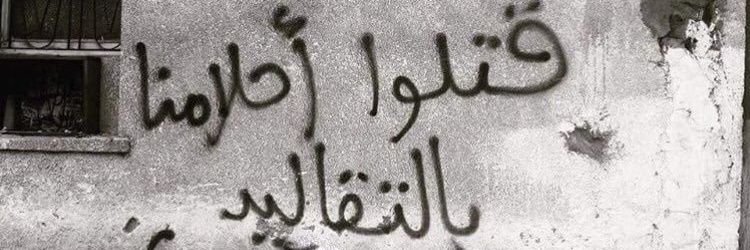 قتلوا أحلامنا
بالتقاليد